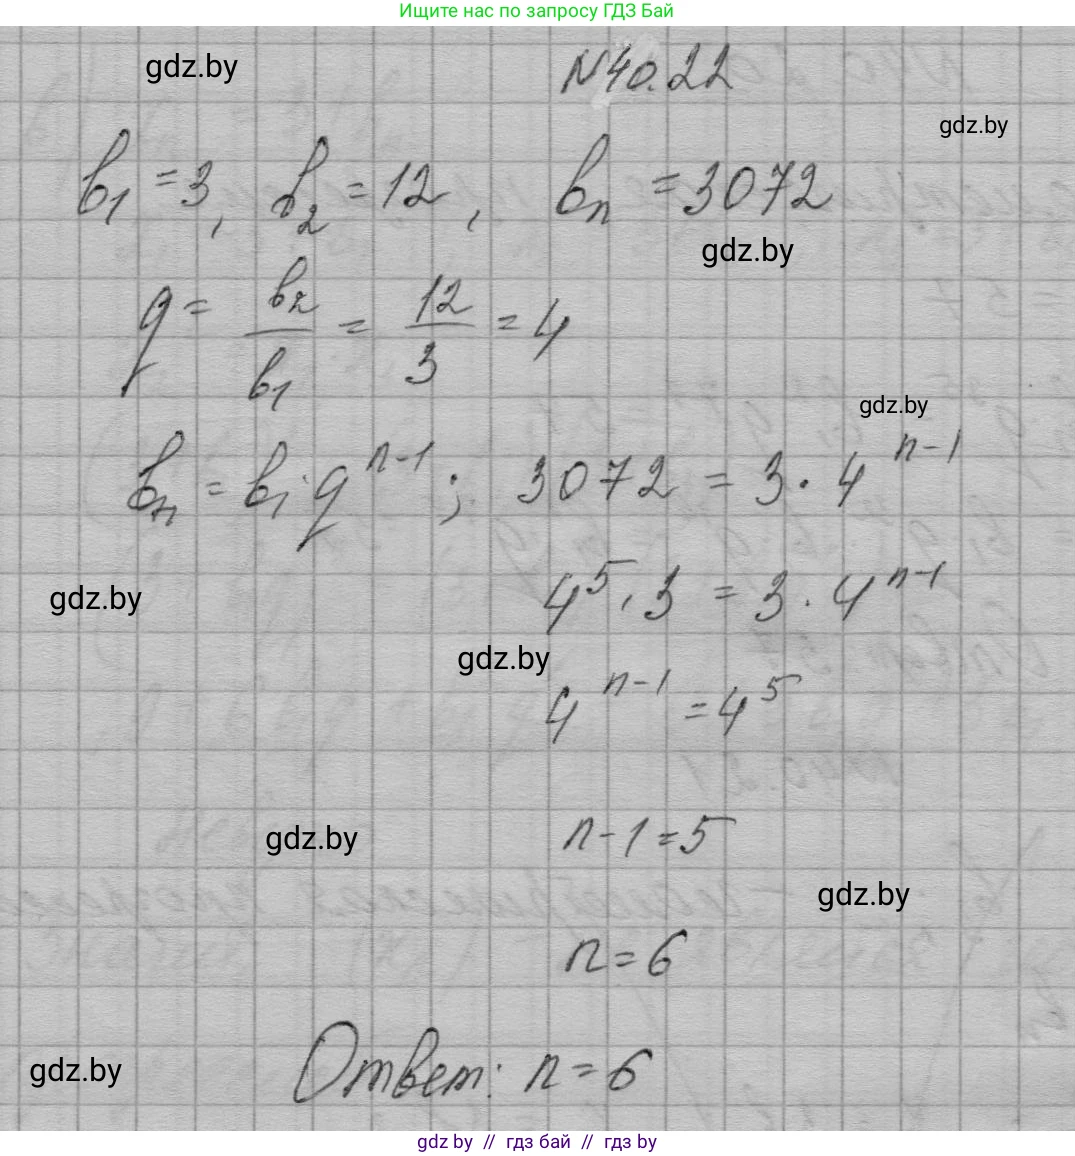 Ищите нас по запросу ГДЗ Бай
gdz.by
N40.22
gdz.by
b₁ = 3, b₂ = 12, bₙ = 3072
gdz.by
q = b₂/b₁ = 12/3 = 4
gdz.by
bₙ = b₁·qⁿ⁻¹; 3072 = 3·4ⁿ⁻¹
4⁵·3 = 3·4ⁿ⁻¹
gdz.by
gdz.by
4ⁿ⁻¹ = 4⁵
n-1=5
gdz.by
gdz.by
n=6
Ответ: n=6
gdz.by
gdz by // гдз бай // гдз by